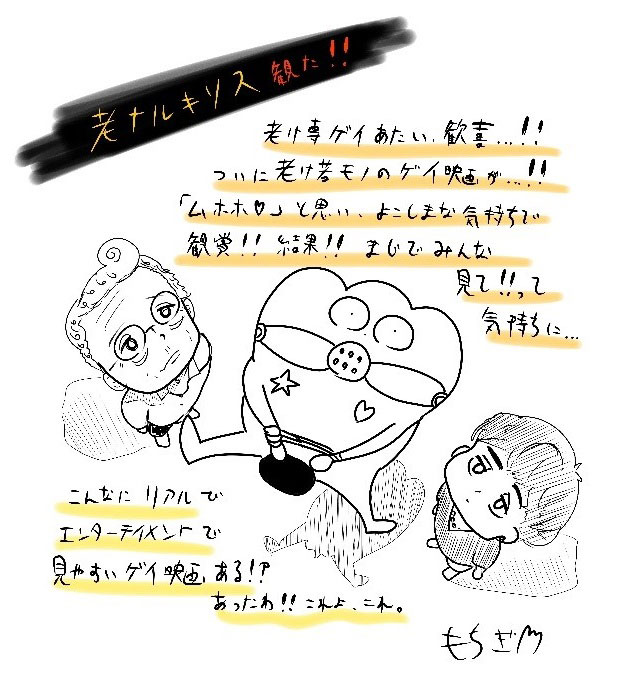 老ナルキソス 観た!!
老け専ゲイあたい、歓喜...!!
ついに老け若モノのゲイ映画が...!!
「ムホホ♡」と思い、よこしまな気持ちで
観賞!! 結果!! まじでみんな
見て!!って
気持ちに...
こんなにリアルで
エンターテイメントで
見やすいゲイ映画ある!?
あったわ!! これよ、これ。
もちぎ